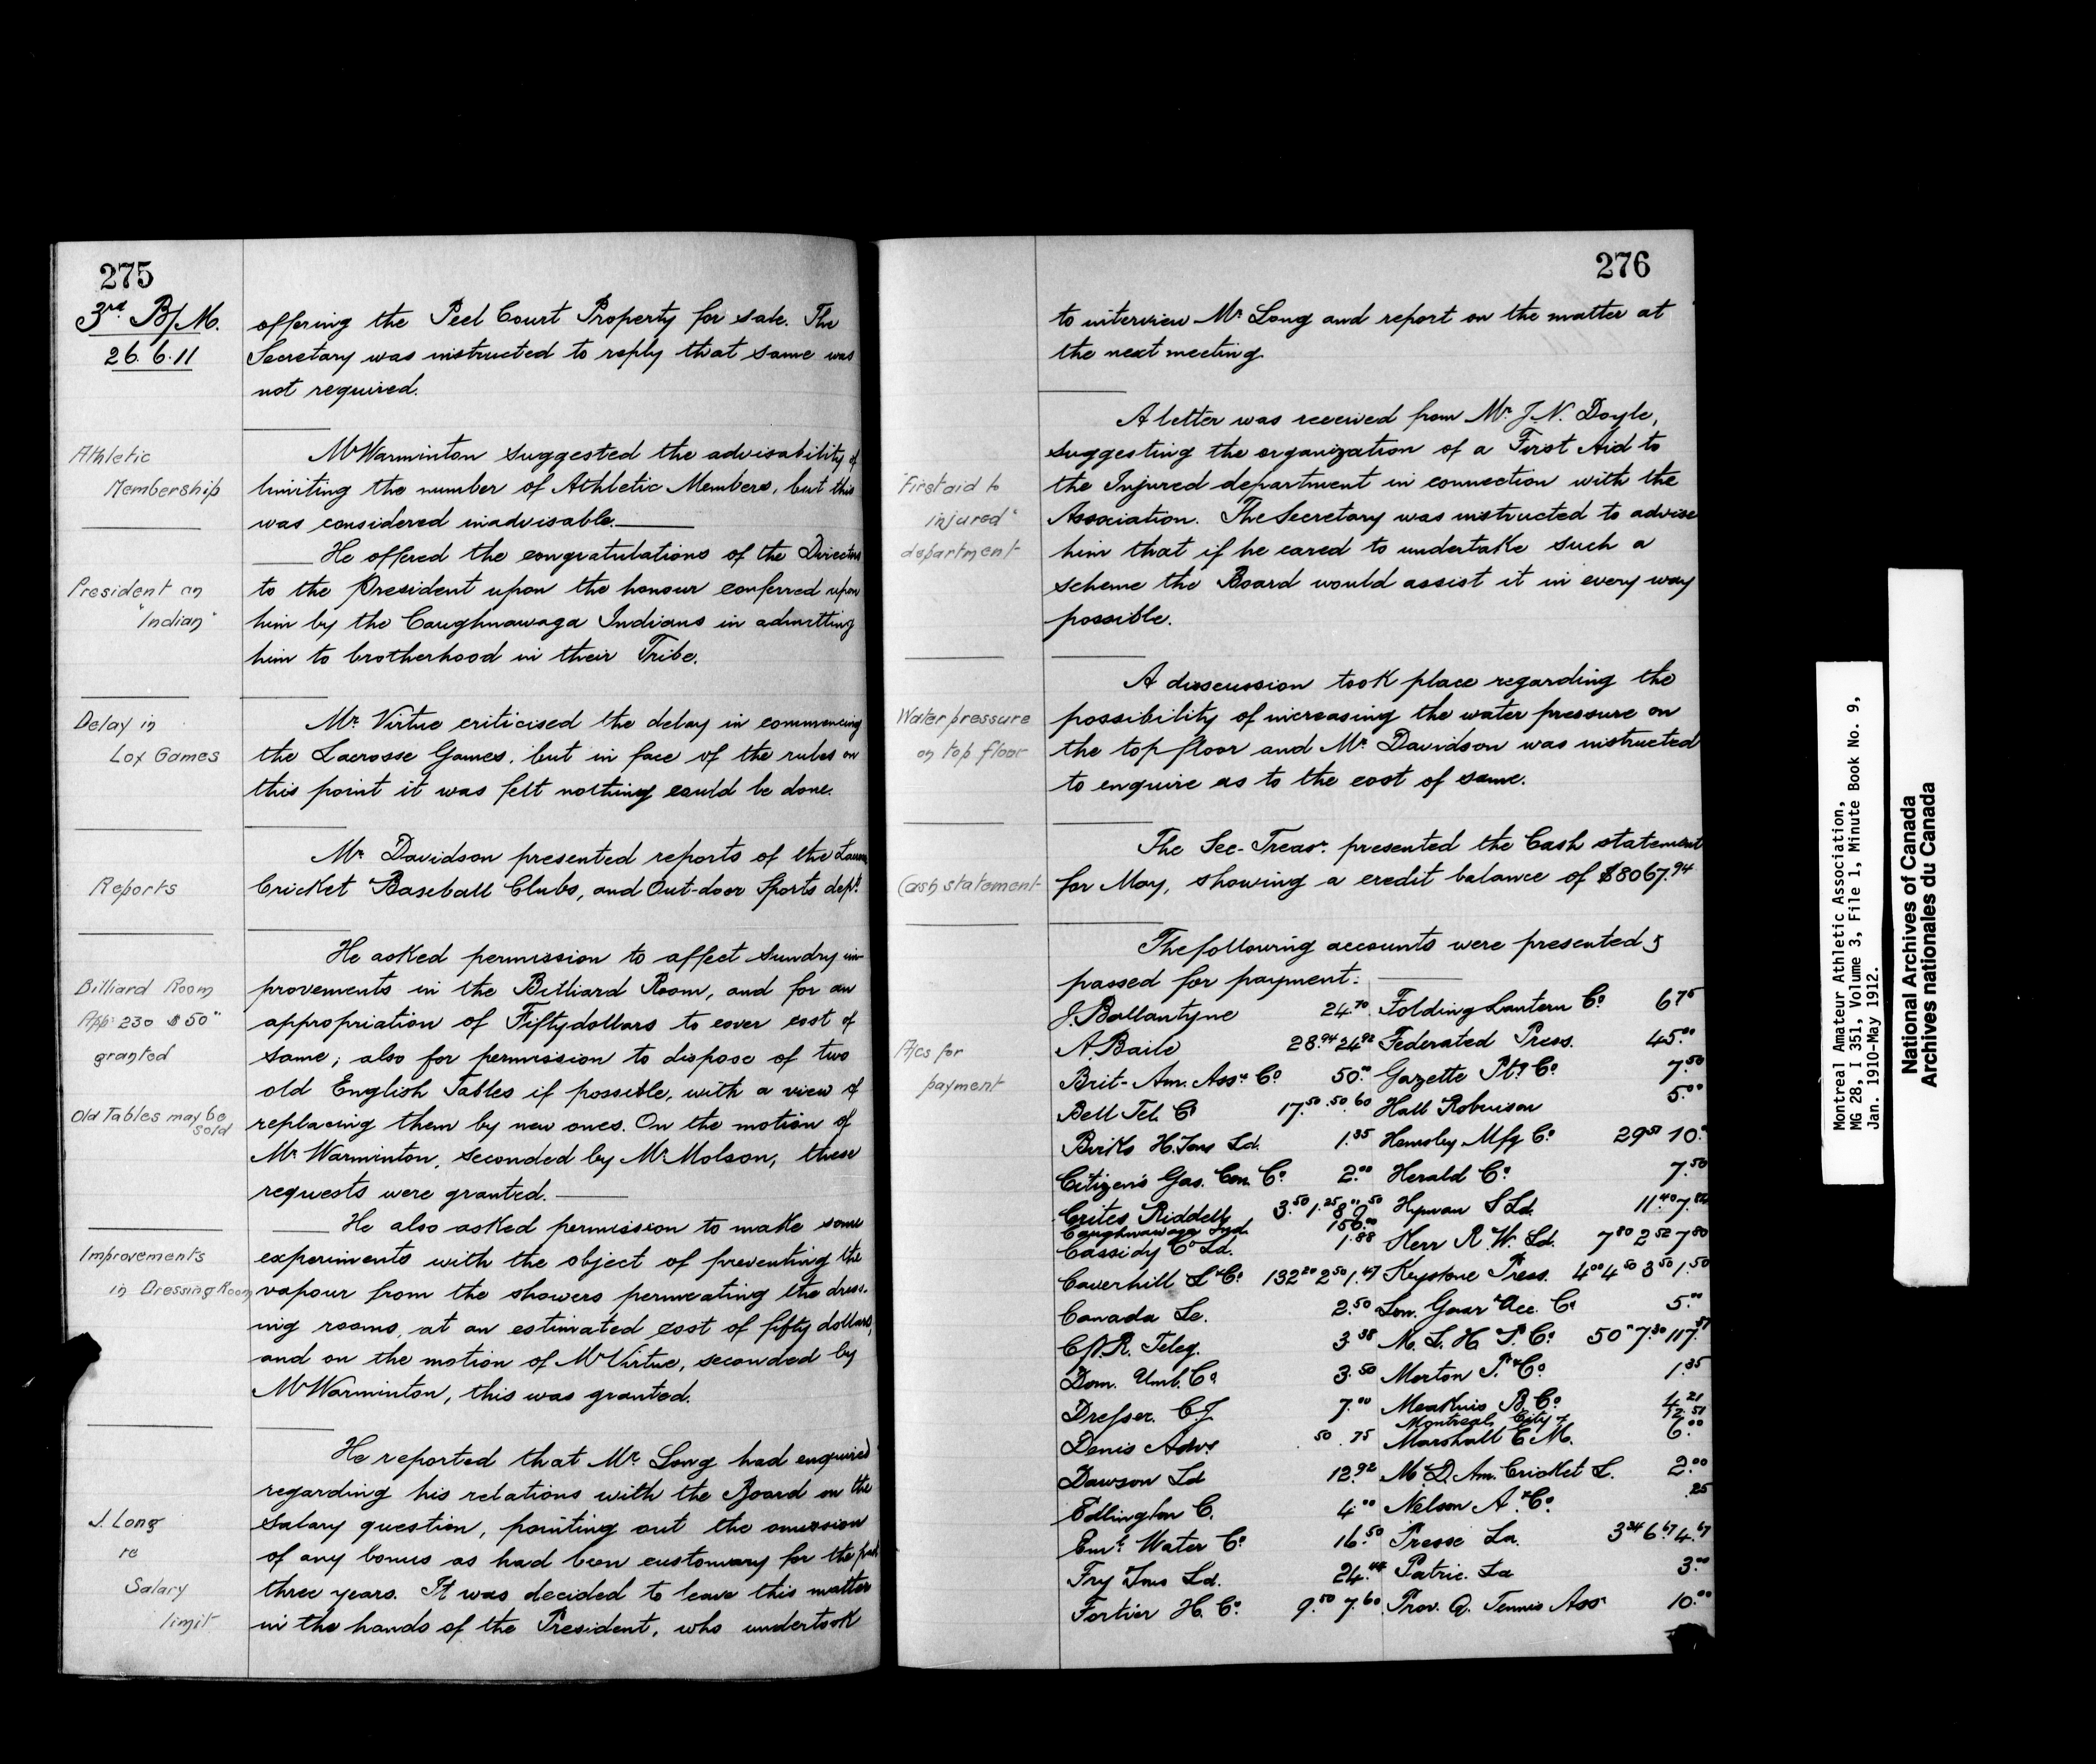 275
3rd B/M.
26.6.11
offering the Peel Court Property for sale. The
Secretary was instructed to reply that same was
not required.
Athletic
Membership
Mr Warminton suggested the advisability of
limiting the number of Athletic Members, but this
was considered inadvisable.
He offered the congratulations of the Directors
President an
"Indian"
to the President upon the honour conferred upon
him by the Caughnawaga Indians in admitting
him to brotherhood in their Tribe.
Delay in
Lox Games
Mr. Virtue criticised the delay in commencing
the Lacrosse Games, but in face of the rules on
this point it was felt nothing could be done.
Reports
Mr. Davidson presented reports of the
Cricket Baseball Clubs, and Out-door Sports dept.
He asked permission to affect sundry im-
Billiard Room
App: 230 $50"
granted
provements in the Billiard Room, and for an
appropriation of Fifty dollars to cover cost of
same; also for permission to dispose of two
old English Tables if possible, with a view of
Old Tables may be
sold
replacing them by new ones. On the motion of
Mr Warminton, seconded by Mr Molson, these
requests were granted.
He also asked permission to make some
Improvements
in Dressing Room
experiments with the object of preventing the
vapour from the showers permeating the dress-
ing rooms, at an estimated cost of fifty dollars,
and on the motion of Mr Virtue, seconded by
Mr Warminton, this was granted.
He reported that Mr. Long had enquired
regarding his relations with the Board on the
J. Long
re
Salary
limit
salary question, pointing out the omission
of any bonus as had been customary for the past
three years. It was decided to leave this matter
in the hands of the President, who undertook
276
to interview Mr Long and report on the matter at
the next meeting.
"First aid to
injured"
department
A letter was received from Mr. J.N. Doyle,
suggesting the organization of a First Aid to
the Injured department in connection with the
Association. The Secretary was instructed to advise
him that if he cared to undertake such a
scheme the Board would assist it in every way
possible.
Water pressure
on top floor
A disscussion took place regarding the
possibility of increasing the water pressure on
the top floor and Mr. Davidson was instructed
to enquire as to the cost of same.
Cash statement
The Sec-Treasr. presented the Cash statement
for May, showing a credit balance of $8067.94
The following accounts were presented &
passed for payment:
A/cs for
payment
J. Ballantyne 24.70 Folding Lantern Co. 6 75
A. Baile 28.94 24.92 Federated Press. 45.00
Brit-Am. Assn. Co. 50.00 Gazette Ptg Co. 7.50
Bell Tel. Co 17.50 .50 .60 Hall Robinson 5.00
Birks H. Sons Ld. 1.35 Hemsley Mfg Co. 29 51 10.
Citizens Gas. Con. Co. 2.00 Herald Co. 7.50
Crites Riddell 3.50 1.25 Hyman S Ld. 11.40
Caughnawaga Ind. 150.00
Cassidy Co Ld. 1.88 Kerr R.W. Ld. 7 80 2 52 7 80
Caverhill L & Co. 132 20 2 50 1.47 Keystone Press. 4 00 4 50 3 50 1.50
Canada Le. 2.50 Lon. Guar & Acc. Co 5.00
C.P.R. Teleg. 3.38 M. L. H & P. Co. 50 " 7.30 117.
Dom. Umb. Co. 3.50 Morton P. & Co. 1.35
Dresser. C.J. 7.00 Meakins B. Co. 4.21
Montreal City of 12.51
Denis Advg .50 .75 Marshall E.M. 6.00
Dawson Ld 12.92 M & D. Am. Cricket L. 2.00
Edlington C. 4.00 Nelson A. & Co. .25
Water Co. 16.50 Presse La. 3 34 6.67 4.67
Fry Sons Ld. 24.44 Patrie. La 3.00
Fortier H. Co. 9.50 7.60 Prov. Q. Tennis Assn 10.00
Montreal Amateur Athletic Association,
MG 28, I 351, Volume 3, File 1, Minute Book No. 9,
Jan. 1910-May 1912.
National Archives of Canada
Archives nationales du Canada